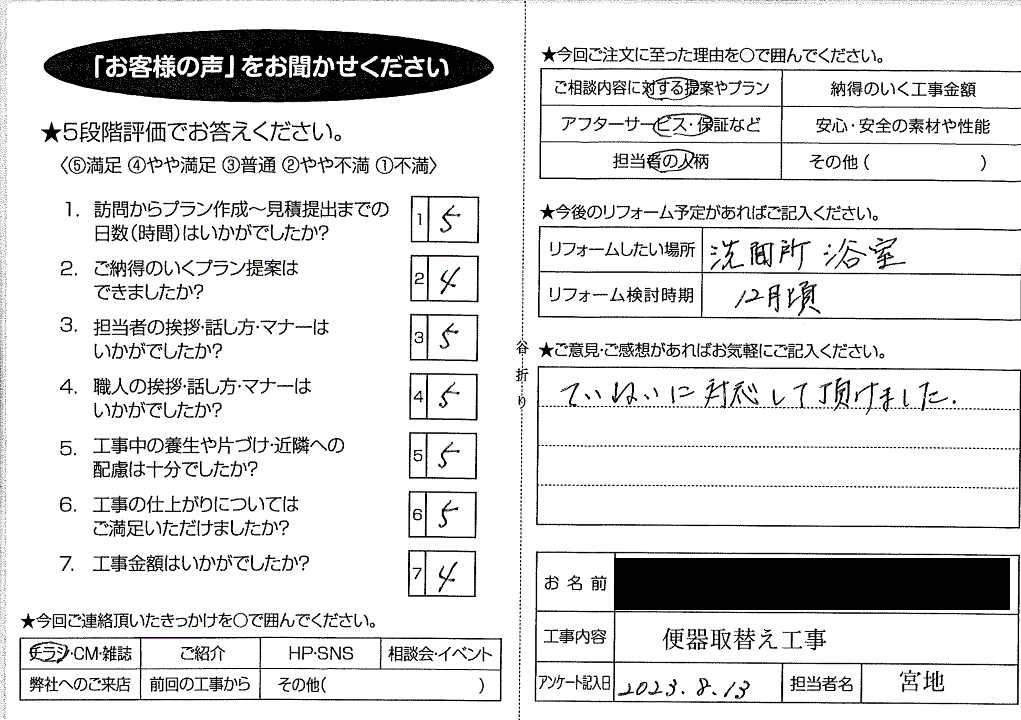 「お客様の声」をお聞かせください
★5段階評価でお答えください。
〈⑤満足 ④やや満足 ③普通 ②やや不満 ①不満〉
1. 訪問からプラン作成～見積提出までの
日数(時間)はいかがでしたか?
1 5
2. ご納得のいくプラン提案は
できましたか?
2 4
3. 担当者の挨拶・話し方・マナーは
いかがでしたか?
3 5
4. 職人の挨拶・話し方・マナーは
いかがでしたか?
4 5
5. 工事中の養生や片づけ・近隣への
配慮は十分でしたか?
5 5
6. 工事の仕上がりについては
ご満足いただけましたか?
6 5
7. 工事金額はいかがでしたか?
7 4
★今回ご連絡頂いたきっかけを○で囲んでください。
チラシ・CM・雑誌 ご紹介 HP・SNS 相談会・イベント
弊社へのご来店 前回の工事から その他( )
谷折り
★今回ご注文に至った理由を○で囲んでください。
ご相談内容に対する提案やプラン 納得のいく工事金額
アフターサービス・保証など 安心・安全の素材や性能
担当者の人柄 その他( )
★今後のリフォーム予定があればご記入ください。
リフォームしたい場所 洗面所 浴室
リフォーム検討時期 12月頃
★ご意見・ご感想があればお気軽にご記入ください。
ていねいに対応して頂けました.
お名前
工事内容 便器取替え工事
アンケート記入日 2023.8.13 担当者名 宮地